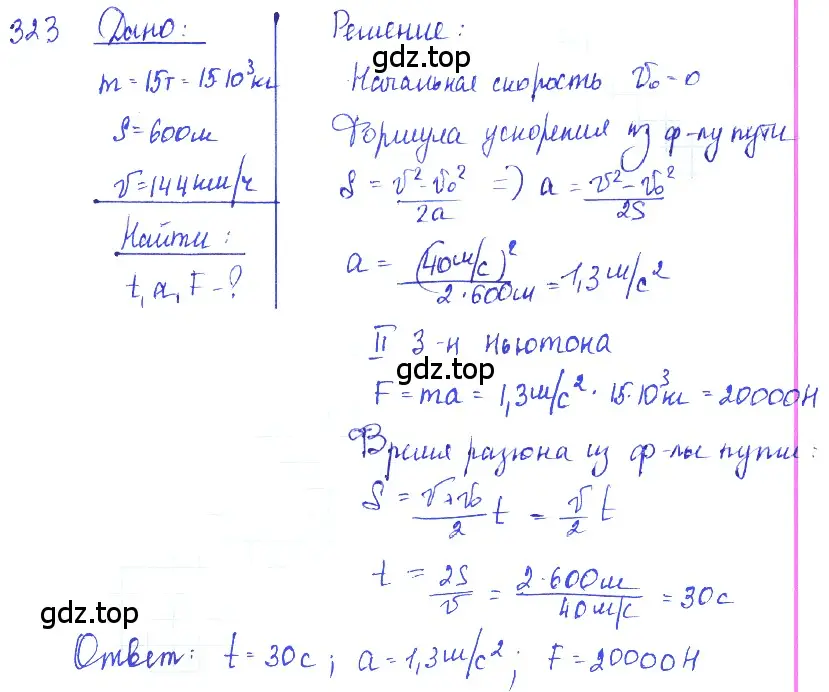 323 Дано:
m = 15т = 15·10³кг
S = 600м
v = 144км/ч
Найти:
t, a, F - ?
Решение:
gdz.top
Начальная скорость v₀ = 0
Формула ускорения из ф-лу пути
S = (v² - v₀²)/2a => a = (v² - v₀²)/2S
a = (40м/с)²/(2·600м) = 1,3м/с²
II З-н Ньютона
gdz.top
F = ma = 1,3м/с² · 15·10³кг = 20000Н
Время разгона из ф-лы пути:
S = (v + v₀)/2 t = v/2 t
t = 2S/v = (2·600м)/(40м/с) = 30с
gdz.top
Ответ: t = 30с; a = 1,3м/с²; F = 20000Н